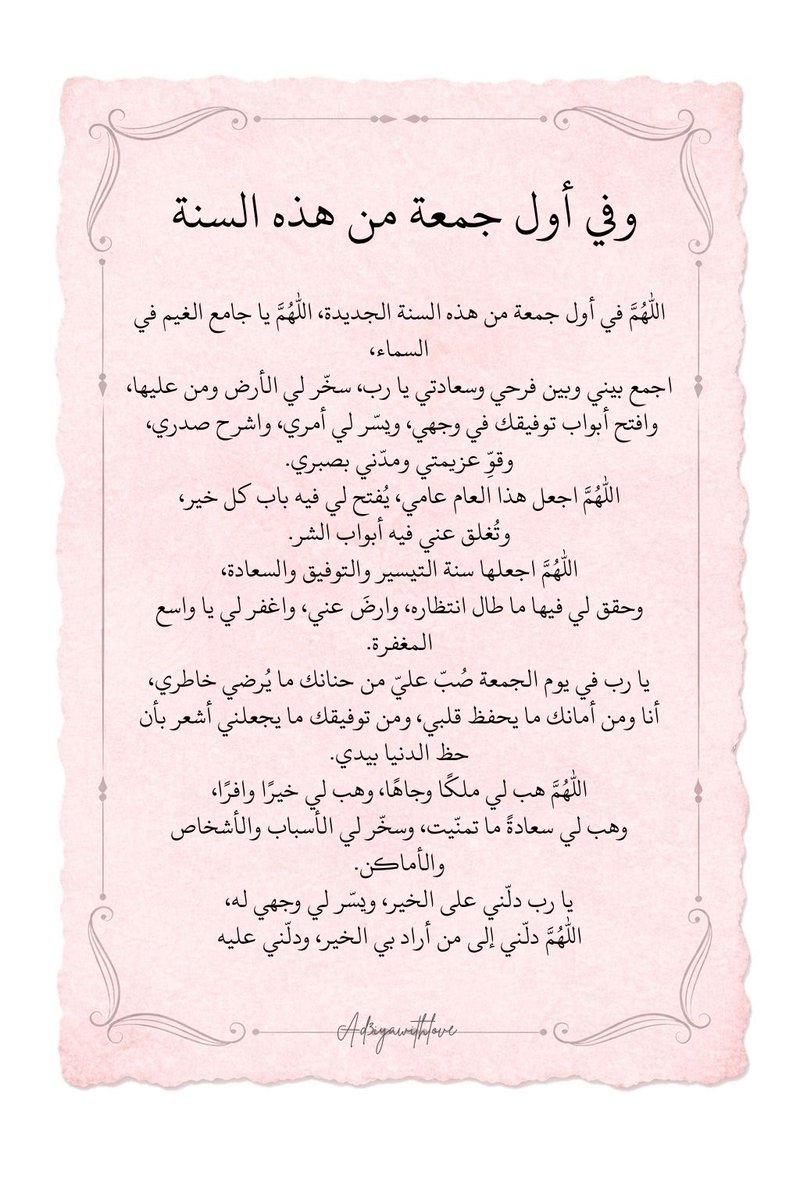 وفي أول جمعة من هذه السنة
اللّٰهُمَّ في أول جمعة من هذه السنة الجديدة، اللّٰهُمَّ يا جامع الغيم في
السماء،
اجمع بيني وبين فرحي وسعادتي يا رب، سخّر لي الأرض ومن عليها،
وافتح أبواب توفيقك في وجهي، ويسّر لي أمري، واشرح صدري،
وقوِّ عزيمتي ومدّني بصبري.
اللّٰهُمَّ اجعل هذا العام عامي، يُفتح لي فيه باب كل خير،
وتُغلق عني فيه أبواب الشر.
اللّٰهُمَّ اجعلها سنة التيسير والتوفيق والسعادة،
وحقق لي فيها ما طال انتظاره، وارضَ عني، واغفر لي يا واسع
المغفرة.
يا رب في يوم الجمعة صُبّ عليّ من حنانك ما يُرضي خاطري،
أنا ومن أمانك ما يحفظ قلبي، ومن توفيقك ما يجعلني أشعر بأن
حظ الدنيا بيدي.
اللّٰهُمَّ هب لي ملكًا وجاهًا، وهب لي خيرًا وافرًا،
وهب لي سعادةً ما تمنّيت، وسخّر لي الأسباب والأشخاص
والأماكن.
يا رب دلّني على الخير، ويسّر لي وجهي له،
اللّٰهُمَّ دلّني إلى من أراد بي الخير، ودلّني عليه
Ad3iyawithlove